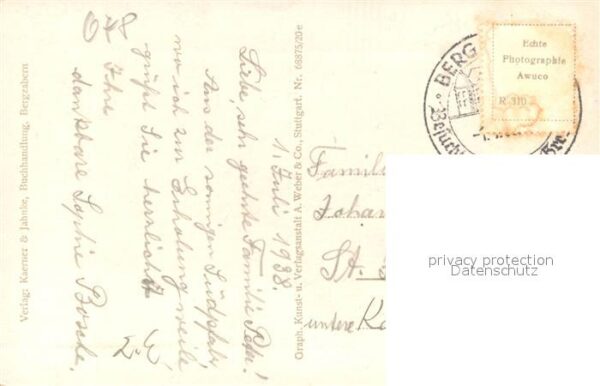 Verlag: Kaerner & Jahnke, Buchhandlung, Bergzabern
1. Juli 1938.
Liebe, sehr geehrte Familie
Aus der sonnigen Südpfalz,
wo ich zur Erholung weile
grüßt Sie herrlichst
Ihre
dankbare Sophie
Graph. Kunst- u. Verlagsanstalt A. Weber & Co., Stuttgart. Nr. 68875/20e
BERG
Echte
Photographie
Awuco
R 310
Famili
Johan
St.
untere
privacy protection
Datenschutz